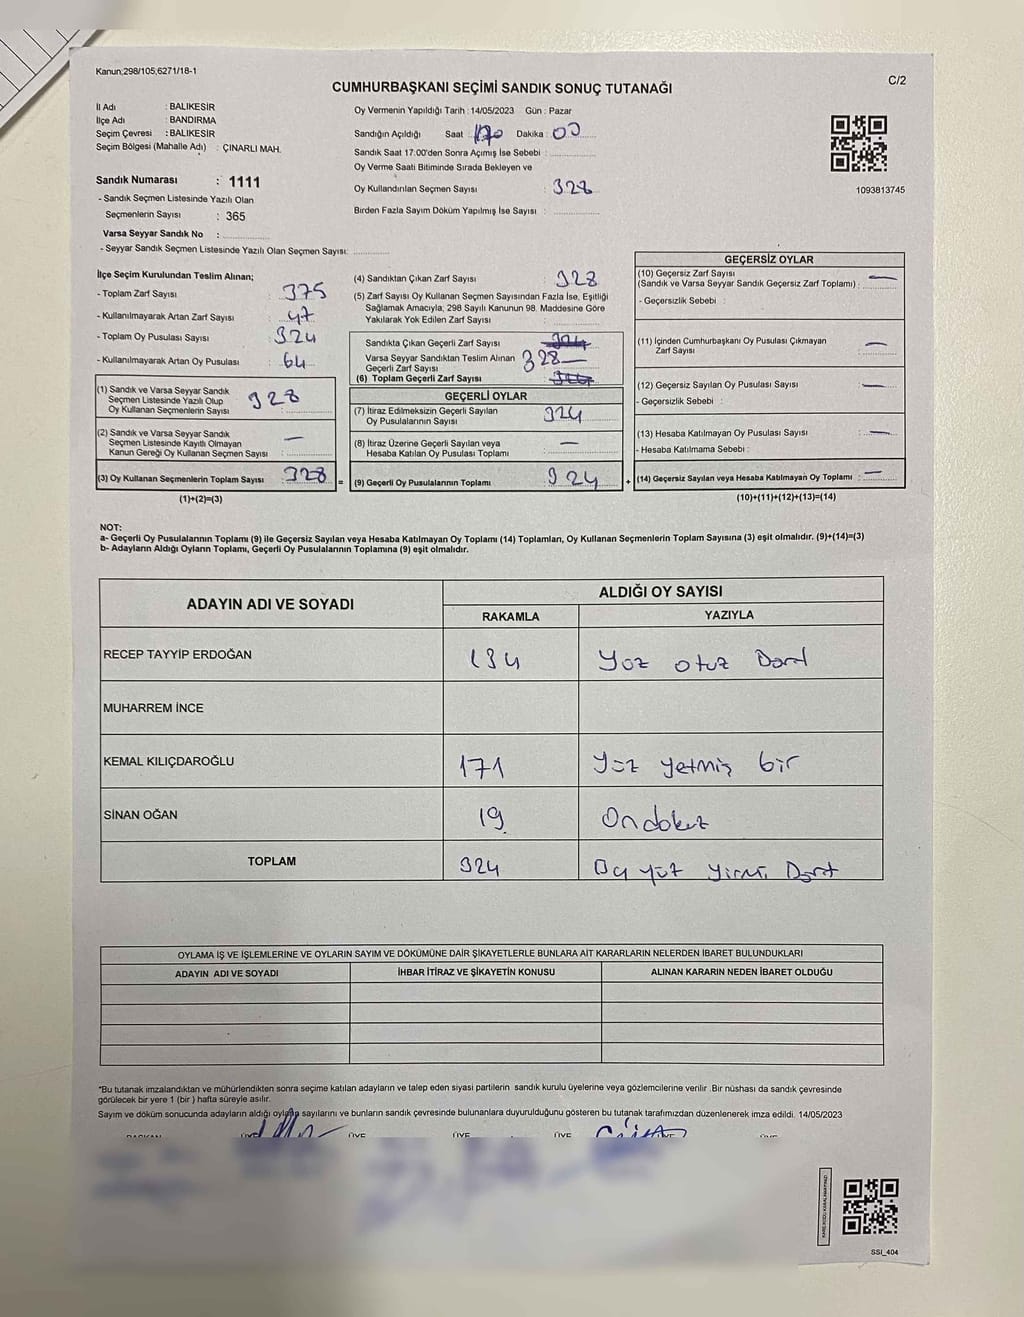 Kanun;298/105,6271/18-1
C/2
CUMHURBAŞKANI SEÇİMİ SANDIK SONUÇ TUTANAĞI
İl Adı : BALIKESİR
İlçe Adı : BANDIRMA
Seçim Çevresi : BALIKESİR
Seçim Bölgesi (Mahalle Adı) : ÇINARLI MAH.
Sandık Numarası : 1111
- Sandık Seçmen Listesinde Yazılı Olan
Seçmenlerin Sayısı : 365
Varsa Seyyar Sandık No :
- Seyyar Sandık Seçmen Listesinde Yazılı Olan Seçmen Sayısı:
Oy Vermenin Yapıldığı Tarih : 14/05/2023 Gün : Pazar
Sandığın Açıldığı Saat : Dakika : 00
Sandık Saat 17:00'den Sonra Açımış İse Sebebi :
Oy Verme Saati Bitiminde Sırada Bekleyen ve
Oy Kullandırılan Seçmen Sayısı : 328
Birden Fazla Sayım Döküm Yapılmış İse Sayısı :
1093813745
İlçe Seçim Kurulundan Teslim Alınan;
- Toplam Zarf Sayısı : 375
- Kullanılmayarak Artan Zarf Sayısı : 47
- Toplam Oy Pusulası Sayısı : 324
- Kullanılmayarak Artan Oy Pusulası : 64
(1) Sandık ve Varsa Seyyar Sandık
Seçmen Listesinde Yazılı Olup
Oy Kullanan Seçmenlerin Sayısı : 328
(2) Sandık ve Varsa Seyyar Sandık
Seçmen Listesinde Kayıtlı Olmayan
Kanun Gereği Oy Kullanan Seçmen Sayısı : —
(3) Oy Kullanan Seçmenlerin Toplam Sayısı : 328
(1)+(2)=(3)
=
(4) Sandıktan Çıkan Zarf Sayısı : 328
(5) Zarf Sayısı Oy Kullanan Seçmen Sayısından Fazla İse, Eşitliği
Sağlamak Amacıyla, 298 Sayılı Kanunun 98. Maddesine Göre
Yakılarak Yok Edilen Zarf Sayısı :
Sandıkta Çıkan Geçerli Zarf Sayısı
Varsa Seyyar Sandıktan Teslim Alınan 328 —
Geçerli Zarf Sayısı
(6) Toplam Geçerli Zarf Sayısı
GEÇERLİ OYLAR
(7) İtiraz Edilmeksizin Geçerli Sayılan
Oy Pusulasının Sayısı : 324
(8) İtiraz Üzerine Geçerli Sayılan veya
Hesaba Katılan Oy Pusulası Toplamı : —
(9) Geçerli Oy Pusulalarının Toplamı : 324
+
GEÇERSİZ OYLAR
(10) Geçersiz Zarf Sayısı —
(Sandık ve Varsa Seyyar Sandık Geçersiz Zarf Toplamı) :
- Geçersizlik Sebebi :
(11) İçinden Cumhurbaşkanı Oy Pusulası Çıkmayan
Zarf Sayısı : —
(12) Geçersiz Sayılan Oy Pusulası Sayısı : —
- Geçersizlik Sebebi :
(13) Hesaba Katılmayan Oy Pusulası Sayısı : —
- Hesaba Katılmama Sebebi :
(14) Geçersiz Sayılan veya Hesaba Katılmayan Oy Toplamı : —
(10)+(11)+(12)+(13)=(14)
NOT:
a- Geçerli Oy Pusulalarının Toplamı (9) ile Geçersiz Sayılan veya Hesaba Katılmayan Oy Toplamı (14) Toplamları, Oy Kullanan Seçmenlerin Toplam Sayısına (3) eşit olmalıdır. (9)+(14)=(3)
b- Adayların Aldığı Oyların Toplamı, Geçerli Oy Pusulalarının Toplamına (9) eşit olmalıdır.
ADAYIN ADI VE SOYADI
ALDIĞI OY SAYISI
RAKAMLA YAZIYLA
RECEP TAYYİP ERDOĞAN 134 Yüz otuz Dört
MUHARREM İNCE
KEMAL KILIÇDAROĞLU 171 Yüz yetmiş bir
SİNAN OĞAN 19 Ondokuz
TOPLAM 324 Üç yüz yirmi Dört
OYLAMA İŞ VE İŞLEMLERİNE VE OYLARIN SAYIM VE DÖKÜMÜNE DAİR ŞİKAYETLERLE BUNLARA AİT KARARLARIN NELERDEN İBARET BULUNDUKLARI
ADAYIN ADI VE SOYADI İHBAR İTİRAZ VE ŞİKAYETİN KONUSU ALINAN KARARIN NEDEN İBARET OLDUĞU
*Bu tutanak imzalandıktan ve mühürlendikten sonra seçime katılan adayların ve talep eden siyasi partilerin sandık kurulu üyelerine veya gözlemcilerine verilir. Bir nüshası da sandık çevresinde
görülecek bir yere 1 (bir) hafta süreyle asılır.
Sayım ve döküm sonucunda adayların aldığı oyların sayılarını ve bunların sandık çevresinde bulunanlara duyurulduğunu gösteren bu tutanak tarafımızdan düzenlenerek imza edildi. 14/05/2023
BAŞKAN ÜYE ÜYE ÜYE ÜYE ÜYE ÜYE
SSI_404